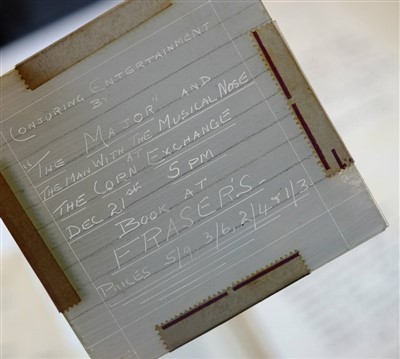 CONJURING ENTERTAINMENT
BY
"THE MAJOR" AND
THE MAN WITH THE MUSICAL NOSE
AT
THE CORN EXCHANGE
DEC 21st 5 PM
BOOK AT
FRASER'S
PRICES 5/9 3/6, 2/4 & 1/3